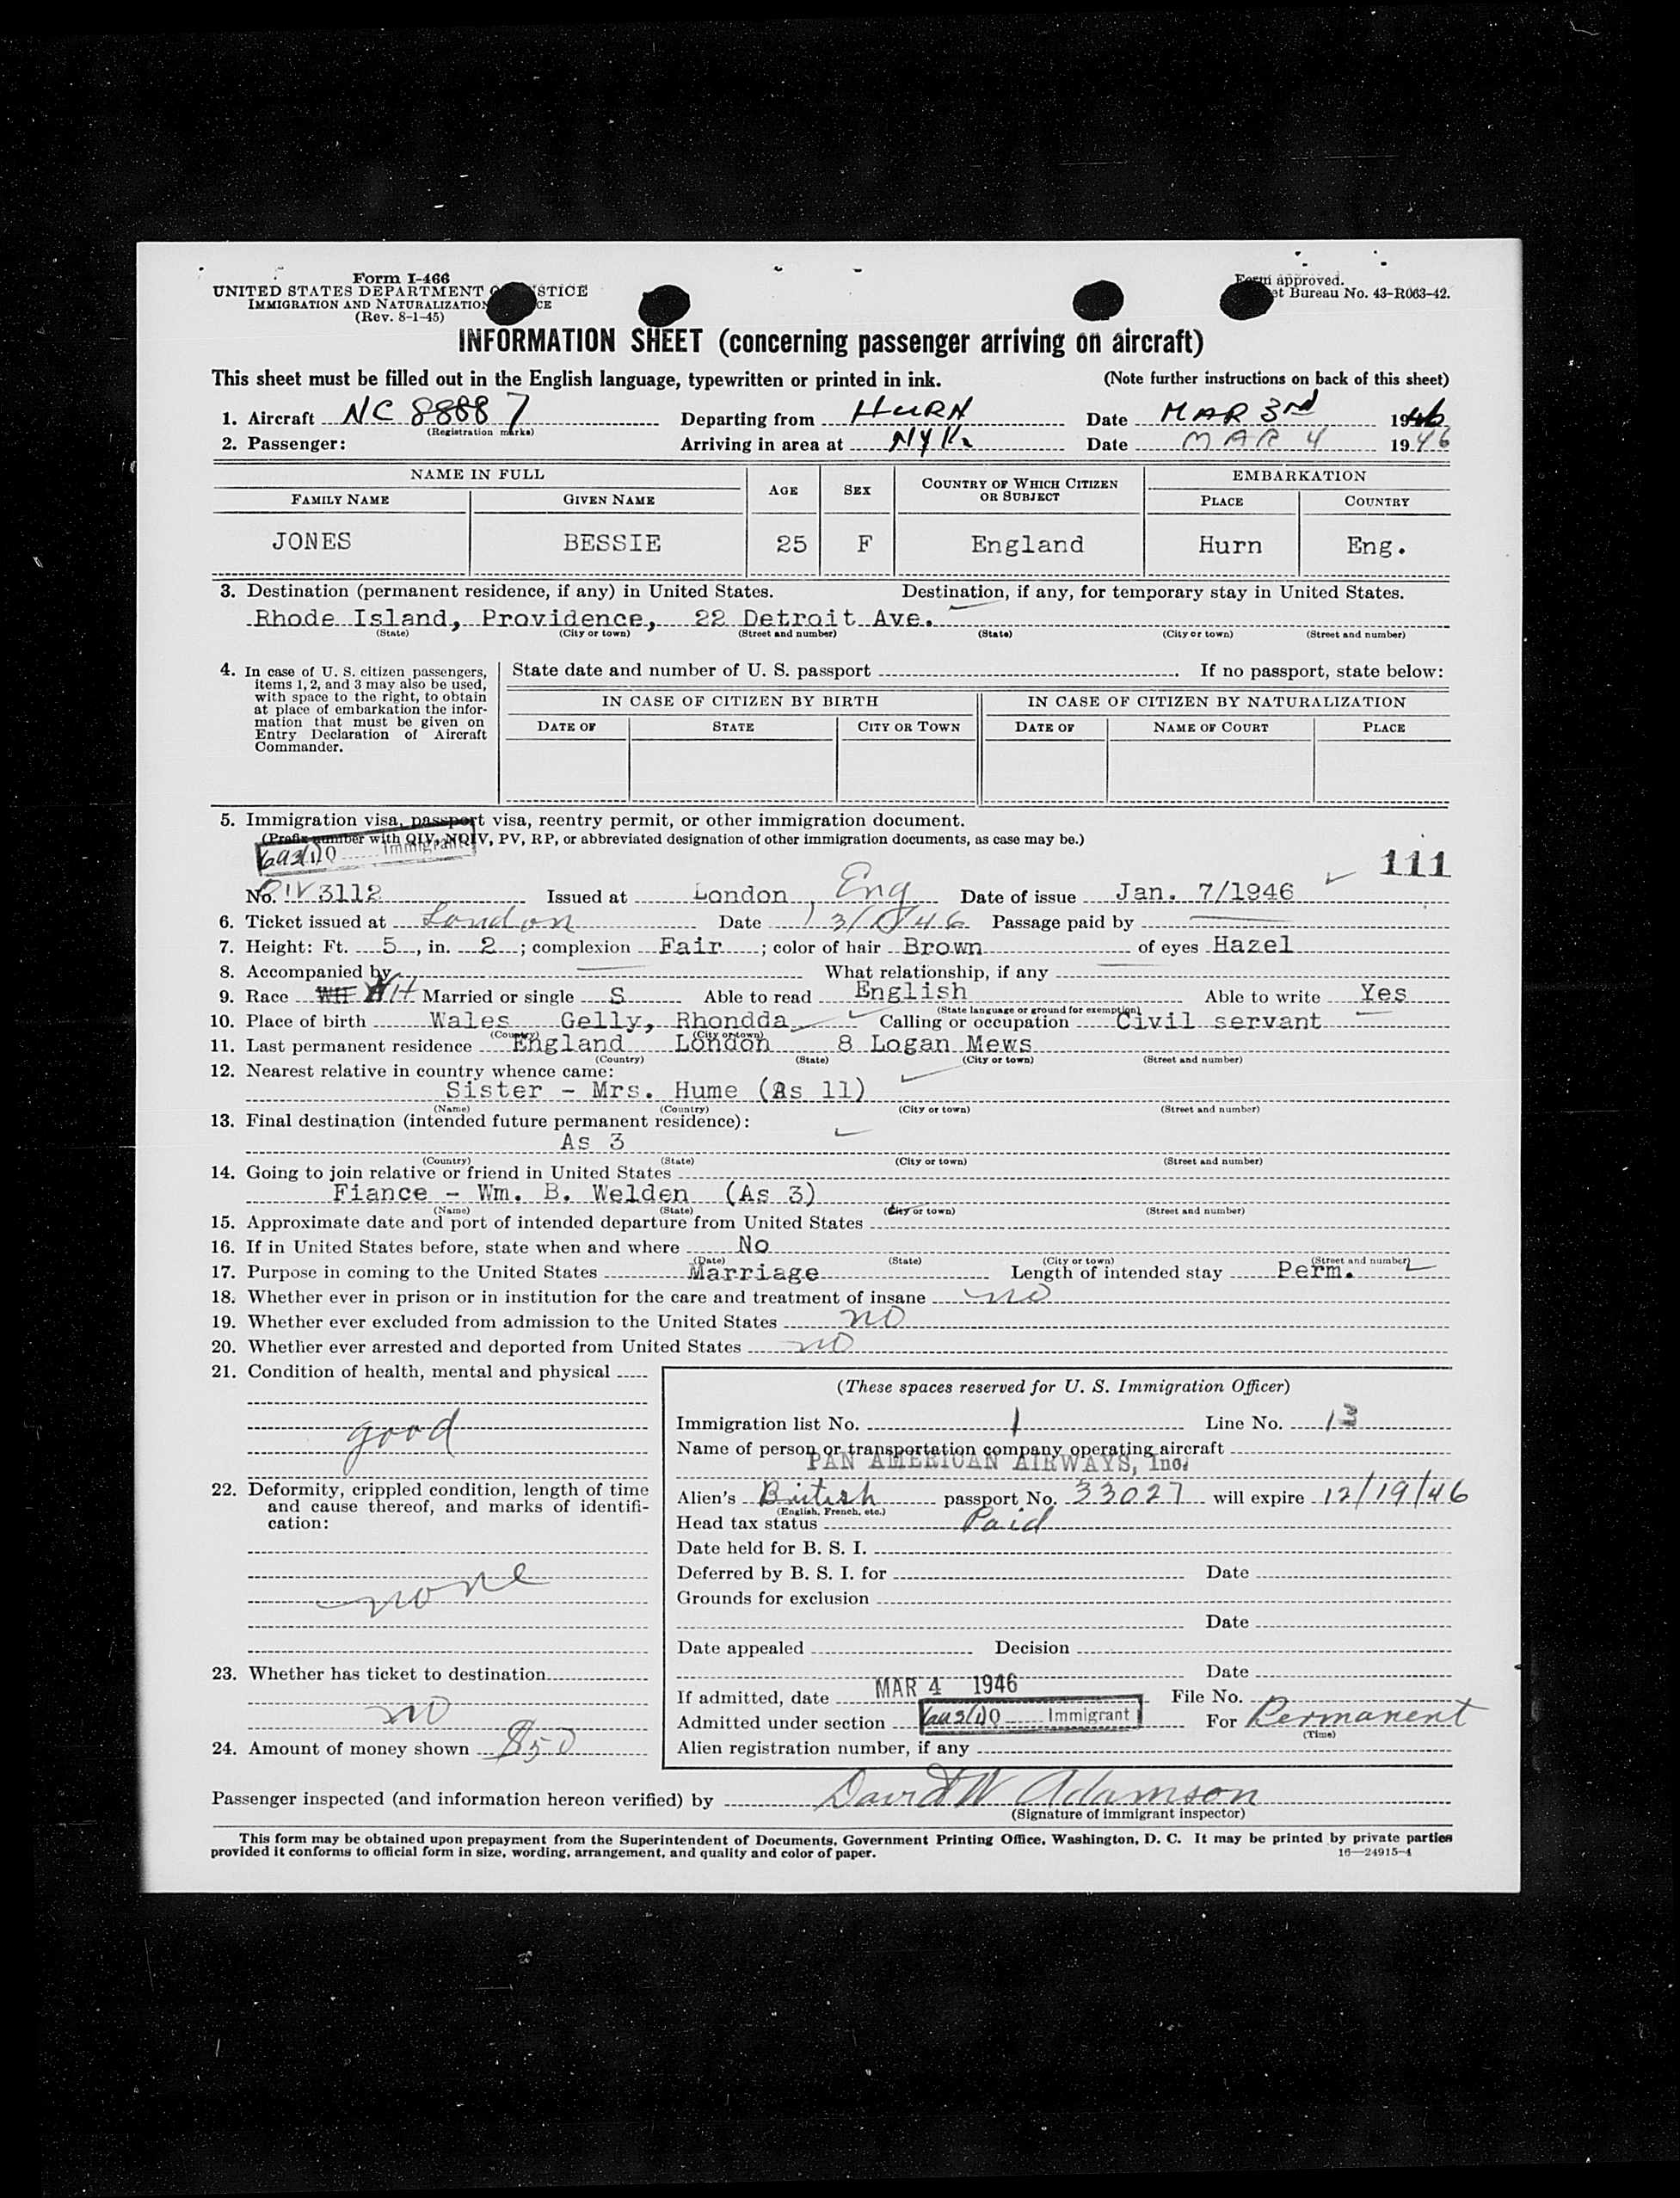 Form I-466
UNITED STATES DEPARTMENT STICE
IMMIGRATION AND NATURALIZATION CE
(Rev. 8-1-45)
Form approved.
et Bureau No. 43-R063-42.
INFORMATION SHEET (concerning passenger arriving on aircraft)
This sheet must be filled out in the English language, typewritten or printed in ink. (Note further instructions on back of this sheet)
1. Aircraft NC 88887 Departing from HURN Date MAR 3rd 1946
(Registration marks)
2. Passenger: Arriving in area at NYK Date MAR 4 1946
NAME IN FULL AGE SEX COUNTRY OF WHICH CITIZEN OR SUBJECT EMBARKATION
FAMILY NAME GIVEN NAME PLACE COUNTRY
JONES BESSIE 25 F England Hurn Eng.
3. Destination (permanent residence, if any) in United States. Destination, if any, for temporary stay in United States.
Rhode Island, Providence, 22 Detroit Ave.
(State) (City or town) (Street and number) (State) (City or town) (Street and number)
4. In case of U. S. citizen passengers,
items 1, 2, and 3 may also be used,
with space to the right, to obtain
at place of embarkation the infor-
mation that must be given on
Entry Declaration of Aircraft
Commander.
State date and number of U. S. passport . If no passport, state below:
IN CASE OF CITIZEN BY BIRTH IN CASE OF CITIZEN BY NATURALIZATION
DATE OF STATE CITY OR TOWN DATE OF NAME OF COURT PLACE
5. Immigration visa, passport visa, reentry permit, or other immigration document.
(Prefix number with QIV, NQIV, PV, RP, or abbreviated designation of other immigration documents, as case may be.)
Immigrant
111
No. QIV 3112 Issued at London, Eng Date of issue Jan. 7/1946
6. Ticket issued at London Date 3/1/46 Passage paid by
7. Height: Ft. 5, in. 2; complexion Fair; color of hair Brown of eyes Hazel
8. Accompanied by What relationship, if any
9. Race WH WH Married or single S Able to read English Able to write Yes
(State language or ground for exemption)
10. Place of birth Wales Gelly, Rhondda Calling or occupation Civil servant
(Country) (City or town)
11. Last permanent residence England London 8 Logan Mews
(Country) (State) (City or town) (Street and number)
12. Nearest relative in country whence came:
Sister - Mrs. Hume (As 11)
(Name) (Country) (City or town) (Street and number)
13. Final destination (intended future permanent residence):
As 3
(Country) (State) (City or town) (Street and number)
14. Going to join relative or friend in United States
Fiance - Wm. B. Welden (As 3)
(Name) (State) (City or town) (Street and number)
15. Approximate date and port of intended departure from United States
16. If in United States before, state when and where No
(Date) (State) (City or town) (Street and number)
17. Purpose in coming to the United States Marriage Length of intended stay Perm.
18. Whether ever in prison or in institution for the care and treatment of insane no
19. Whether ever excluded from admission to the United States no
20. Whether ever arrested and deported from United States no
21. Condition of health, mental and physical
good
22. Deformity, crippled condition, length of time
and cause thereof, and marks of identifi-
cation:
none
23. Whether has ticket to destination
no
24. Amount of money shown $50
(These spaces reserved for U. S. Immigration Officer)
Immigration list No. 1 Line No. 13
Name of person or transportation company operating aircraft
PAN AMERICAN AIRWAYS, Inc.
Alien's British passport No. 33027 will expire 12/19/46
(English, French, etc.)
Head tax status Paid
Date held for B. S. I.
Deferred by B. S. I. for Date
Grounds for exclusion
Date
Date appealed Decision
Date
If admitted, date MAR 4 1946 File No.
Admitted under section Immigrant For Permanent
(Time)
Alien registration number, if any
Passenger inspected (and information hereon verified) by David W Adamson
(Signature of immigrant inspector)
This form may be obtained upon prepayment from the Superintendent of Documents, Government Printing Office, Washington, D. C. It may be printed by private parties
provided it conforms to official form in size, wording, arrangement, and quality and color of paper. 16—24915-4